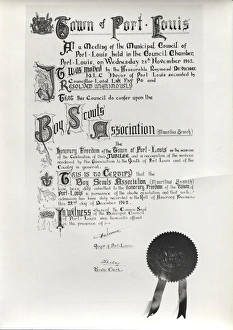 Town of Port-Louis
At a Meeting of the Municipal Council of
Port-Louis held in the Council Chamber,
Port-Louis, on Wednesday 28th November 1962.
It was moved by the Honorable Raymond Devienne
M.L.C. Mayor of Port Louis seconded by
Councillor and
Resolved unanimously
That this Council do confer upon the
Boy Scouts
Association (Mauritius Branch)
the
Honorary Freedom of the Town of Port-Louis on the occasion
of the Celebration of their Jubilee and in recognition of the services
rendered by the Association to the Youth of Port Louis and of the
Country in general
This is to Certify that the
Boy Scouts Association (Mauritius Branch)
has been duly admitted to the Honorary Freedom of the Town of
Port-Louis in pursuance of the above resolution and that such
admission has been duly recorded in the Roll of Honorary Freemen
this 22nd day of December 1962.
In witness whereof the Common Seal
of the Municipal Council
of Port-Louis was hereunto affixed
in the presence of :-
Mayor of Port-Louis.
Town Clerk.